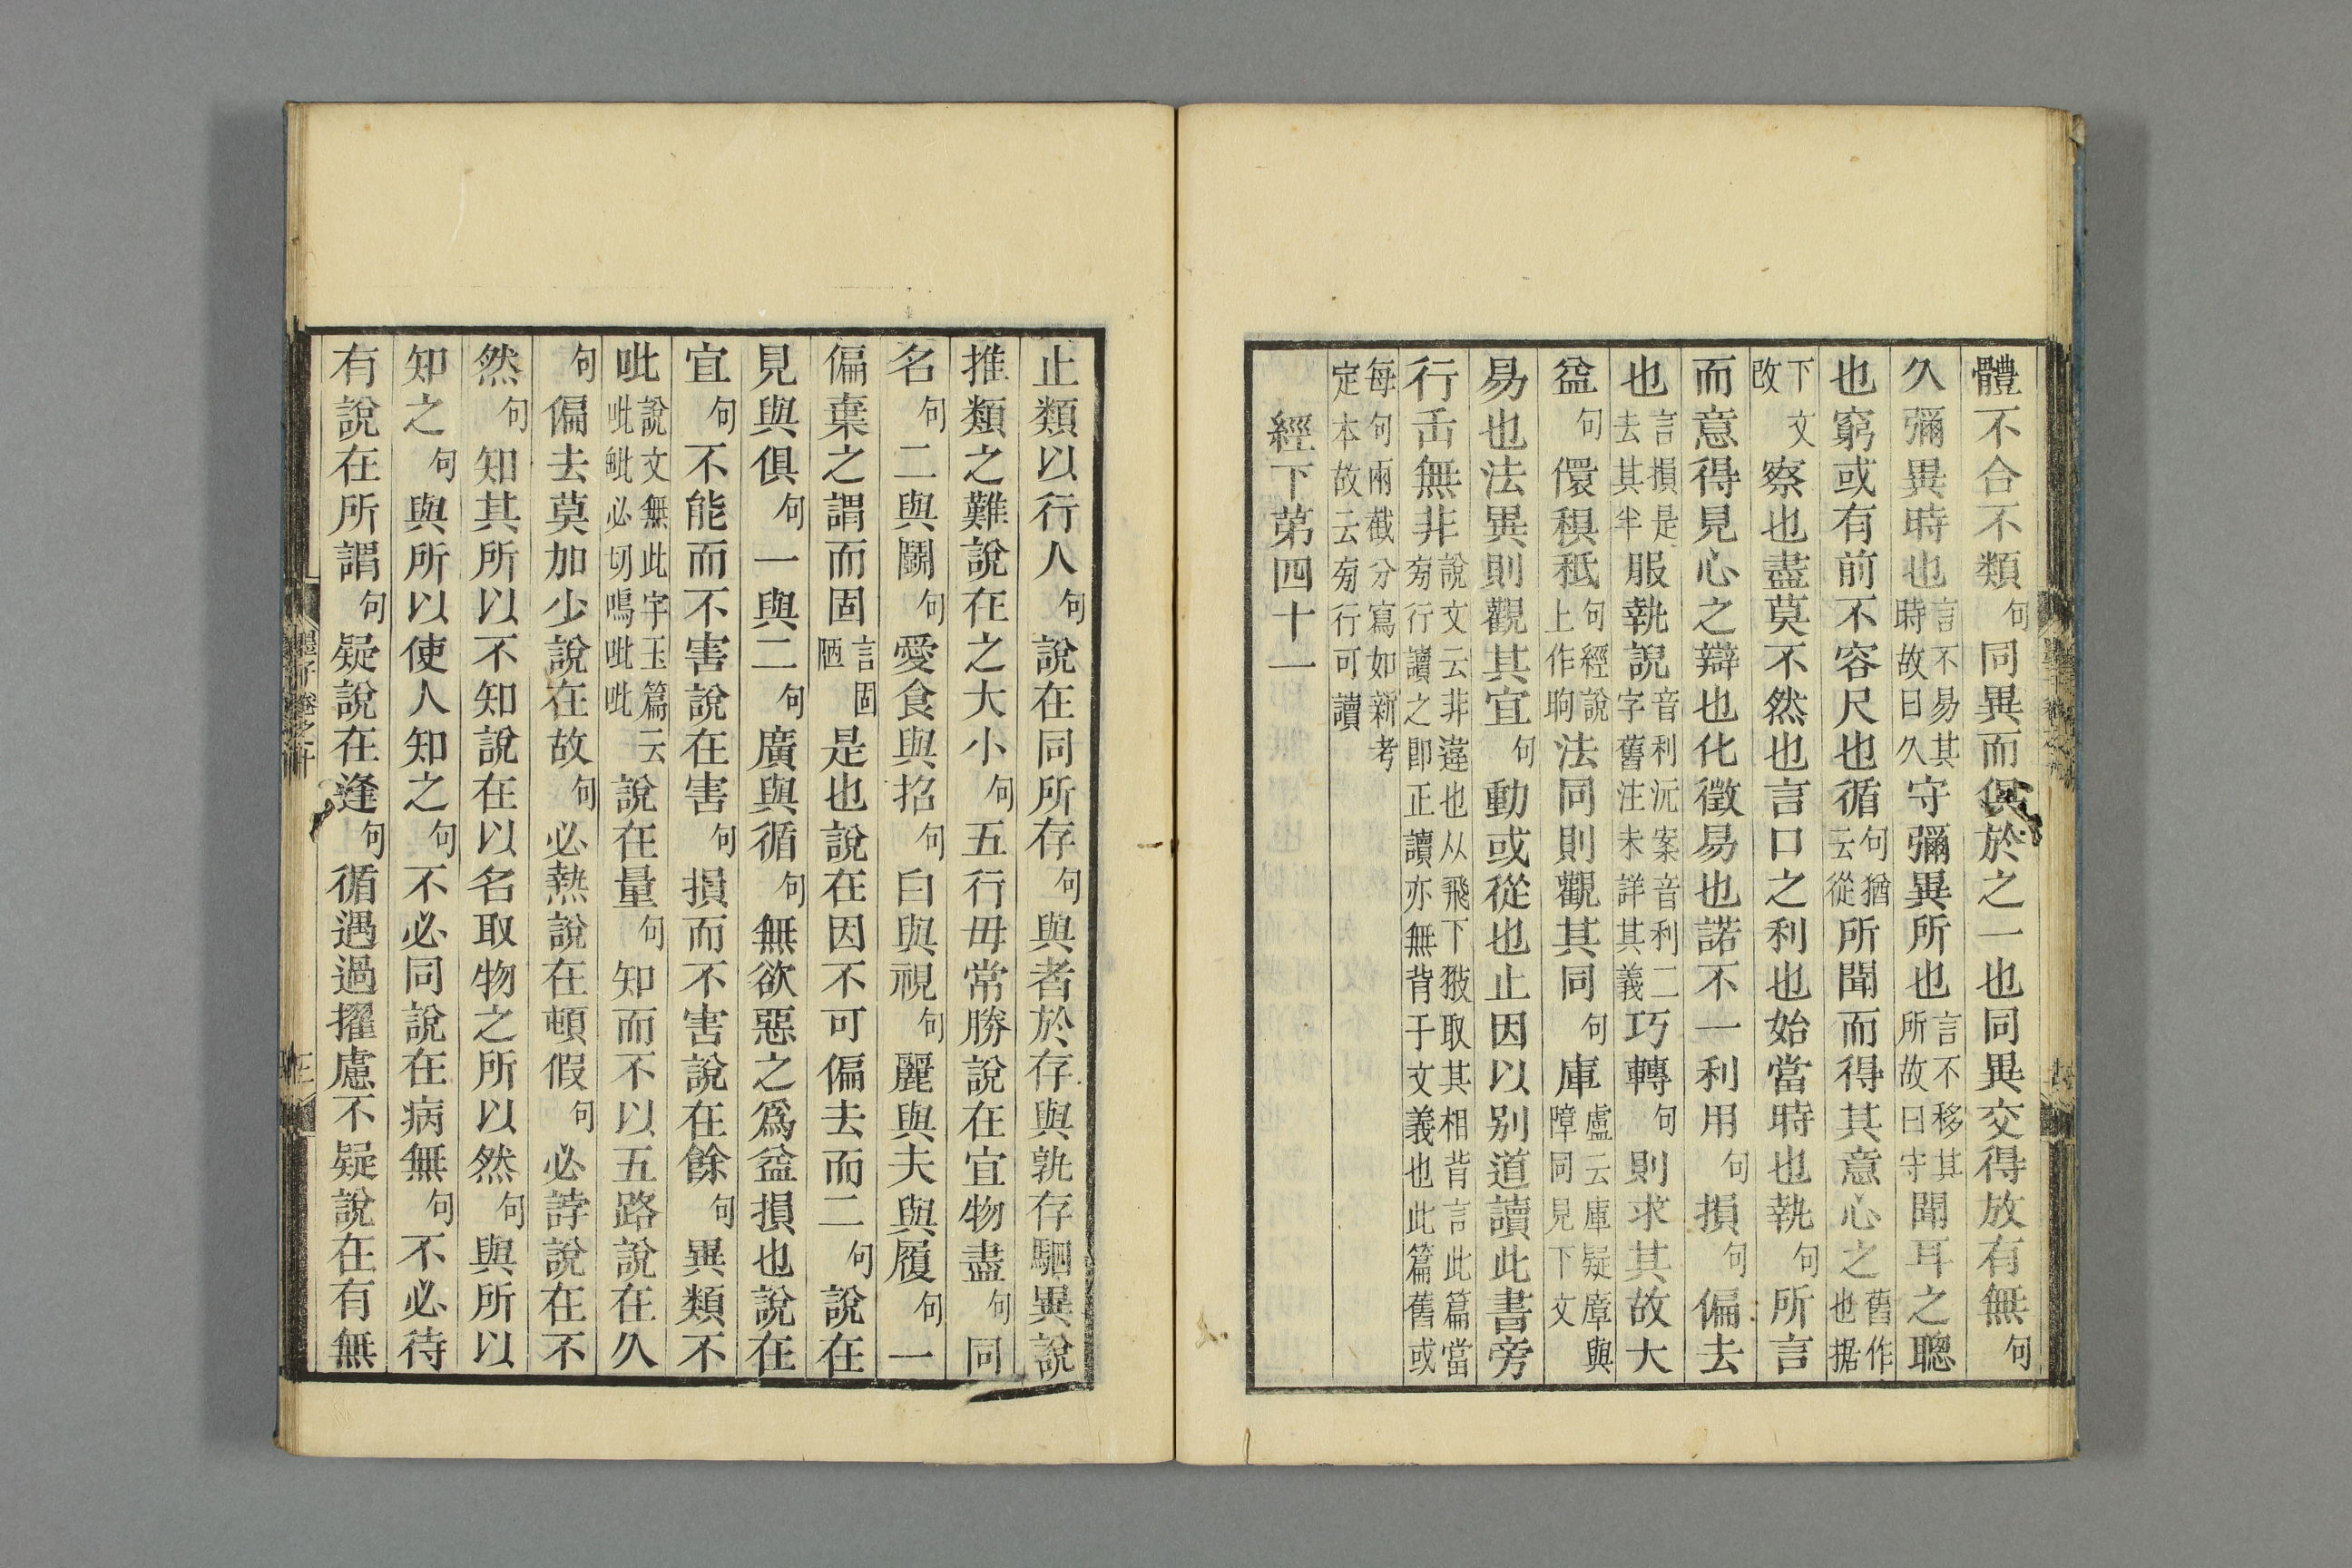 體不合不類句同異而俱於之一也同異交得放有無句
久彌異時也言不易其時故曰久守彌異所也言不移其所故曰守聞耳之聰
也窮或有前不容尺也循句猶云從所聞而得其意心之舊作也据
下文改察也盡莫不然也言口之利也始當時也執句所言
而意得見心之辯也化徵易也諾不一利用句損句偏去
也言損是去其半服執說音利沅案音利二字舊注未詳其義巧轉句則求其故大
益句儇䅵秪句經說上作昫法同則觀其同句庫盧云庫疑庫與障同見下文
易也法異則觀其宜句動或從也止因以别道讀此書旁
行𠮷無非說文云非違也从飛下翄取其相背言此篇當旁行讀之即正讀亦無背于文義也此篇舊或
每句兩截分寫如新考定本故云旁行可讀
經下第四十一
止類以行人句說在同所存句與者於存與孰存駟異說
推類之難說在之大小句五行毋常勝說在宜物盡句同
名句二與鬭句愛食與招句白與視句麗與夫與履句一
偏棄之謂而固言固陋是也說在因不可偏去而二句說在
見與俱句一與二句廣與循句無欲惡之爲益損也說在
宜句不能而不害說在害句損而不害說在餘句異類不
吡說文無此字玉篇云吡鮅必切鳴吡吡說在量句知而不以五路說在久
句偏去莫加少說在故句必熱說在頓假句必誖說在不
然句知其所以不知說在以名取物之所以然句與所以
知之句與所以使人知之句不必同說在病無句不必待
有說在所謂句疑說在逢句循遇過擢慮不疑說在有無
墨子卷之十